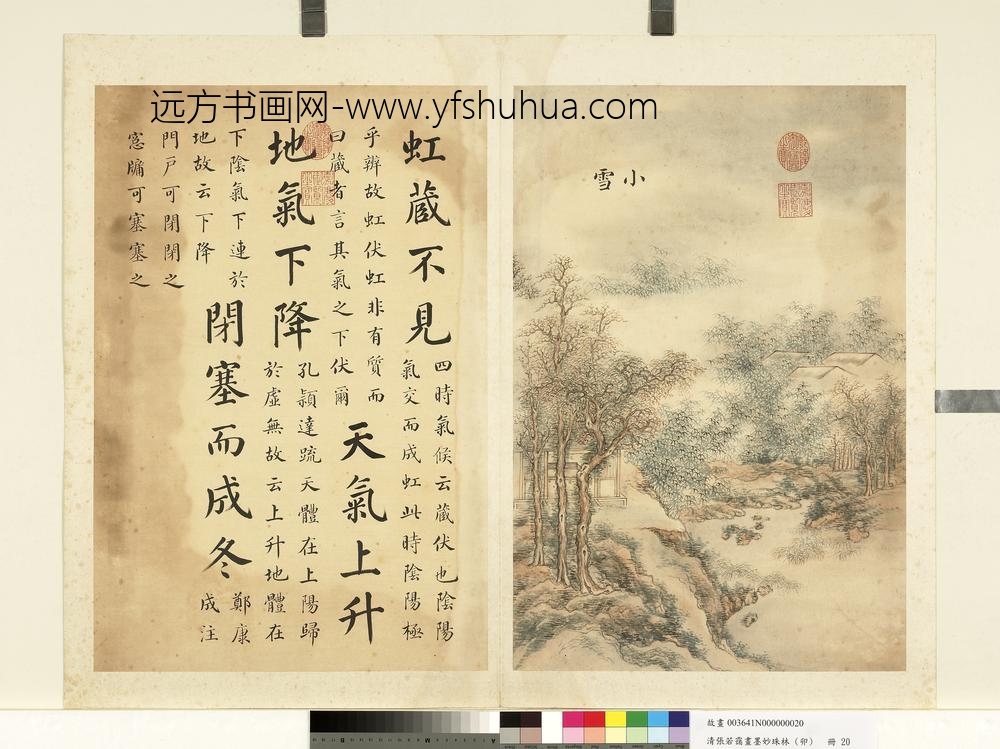 远方书画网-www.yfshuhua.com
小雪
虹蔵不見
四時氣候云蔵伏也陰陽
氣交而成虹此時陰陽極
乎辨故虹伏虹非有質而
曰蔵者言其氣之下伏爾
天氣上升
地氣下降
孔穎達疏天體在上陽歸
於虛無故云上升地體在
下陰氣下連於
地故云下降
閉塞而成冬
鄭康
成注
門戶可閉閉之
窓牖可塞塞之
故畫 003641N000000020
清張若靄畫墨妙珠林（卯） 冊 20